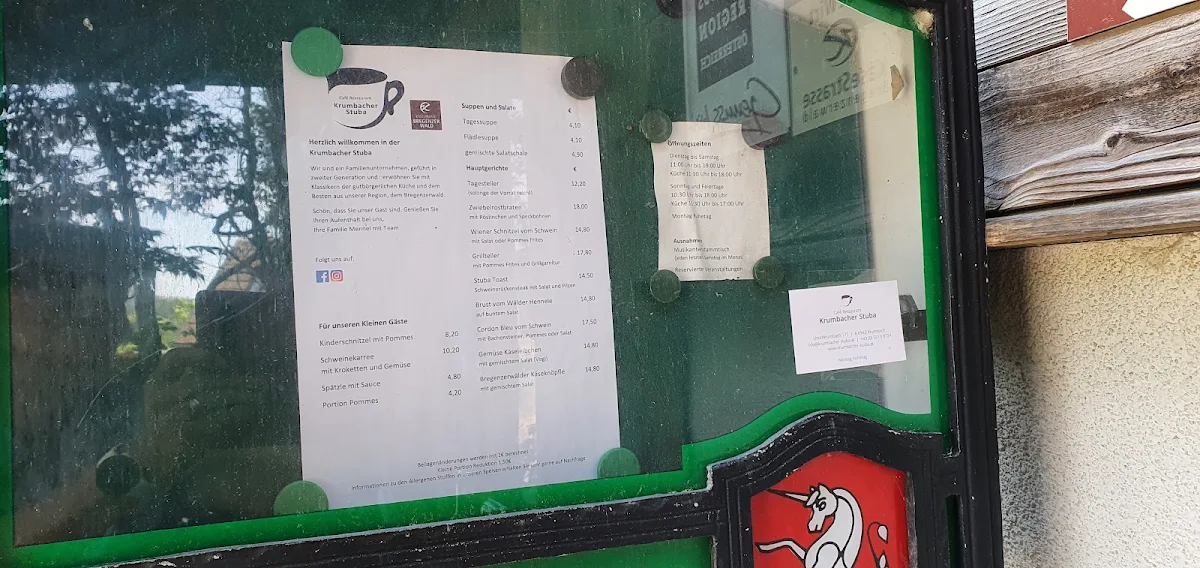 Café Restaurant
Krumbacher
Stuba
BREGENZER
WALD
Herzlich willkommen in der
Krumbacher Stuba
Wir sind ein Familienunternehmen, geführt in
zweiter Generation und verwöhnen Sie mit
Klassikern der gutbürgerlichen Küche und dem
Besten aus unserer Region, dem Bregenzerwald.
Schön, dass Sie unser Gast sind. Genießen Sie
Ihren Aufenthalt bei uns,
Ihre Familie Mennel mit Team
Folgt uns auf:
Für unseren Kleinen Gäste
Kinderschnitzel mit Pommes 8,20
Schweinekarree 10,20
mit Kroketten und Gemüse
Spätzle mit Sauce 4,80
Portion Pommes 4,20
Suppen und Salate €
Tagessuppe 4,10
Flädlesuppe 4,10
gemischte Salatschale 4,90
Hauptgerichte €
Tagesteller 12,20
(solange der Vorrat reicht)
Zwiebelrostbraten 18,00
mit Röstinchen und Speckbohnen
Wiener Schnitzel vom Schwein 14,80
mit Salat oder Pommes Frites
Grillteller 17,80
mit Pommes Frites und Grillgarnitur
Stuba Toast 14,50
Schweinerückensteak mit Salat und Pilzen
Brust vom Wälder Hennele 14,80
auf buntem Salat
Cordon Bleu vom Schwein 17,50
mit Bachensteiner, Pommes oder Salat
Gemüse Käselaibchen 14,80
mit gemischtem Salat (Vegi)
Bregenzerwälder Käseknöpfle 14,80
mit gemischtem Salat
Beilagenänderungen werden mit 1€ berechnet
Kleine Portion Reduktion 1,50€
Informationen zu den Allergenen Stoffen in unseren Speisen erhalten Sie sehr gerne auf Nachfrage
REGION
ÖSTERREICH
Genuss
KäseStrasse
Bregenzerwald
Öffnungszeiten
Dienstag bis Samstag
11:00 Uhr bis 19:00 Uhr
Küche 11:30 Uhr bis 18:00 Uhr
Sonntag und Feiertage
10:30 Uhr bis 18:00 Uhr
Küche 11:30 Uhr bis 17:00 Uhr
Montag Ruhetag
Ausnahme:
Musikantenstammtisch
(jeden letzten Samstag im Monat)
Reservierte Veranstaltungen
Café Restaurant
Krumbacher Stuba
Montag Ruhetag